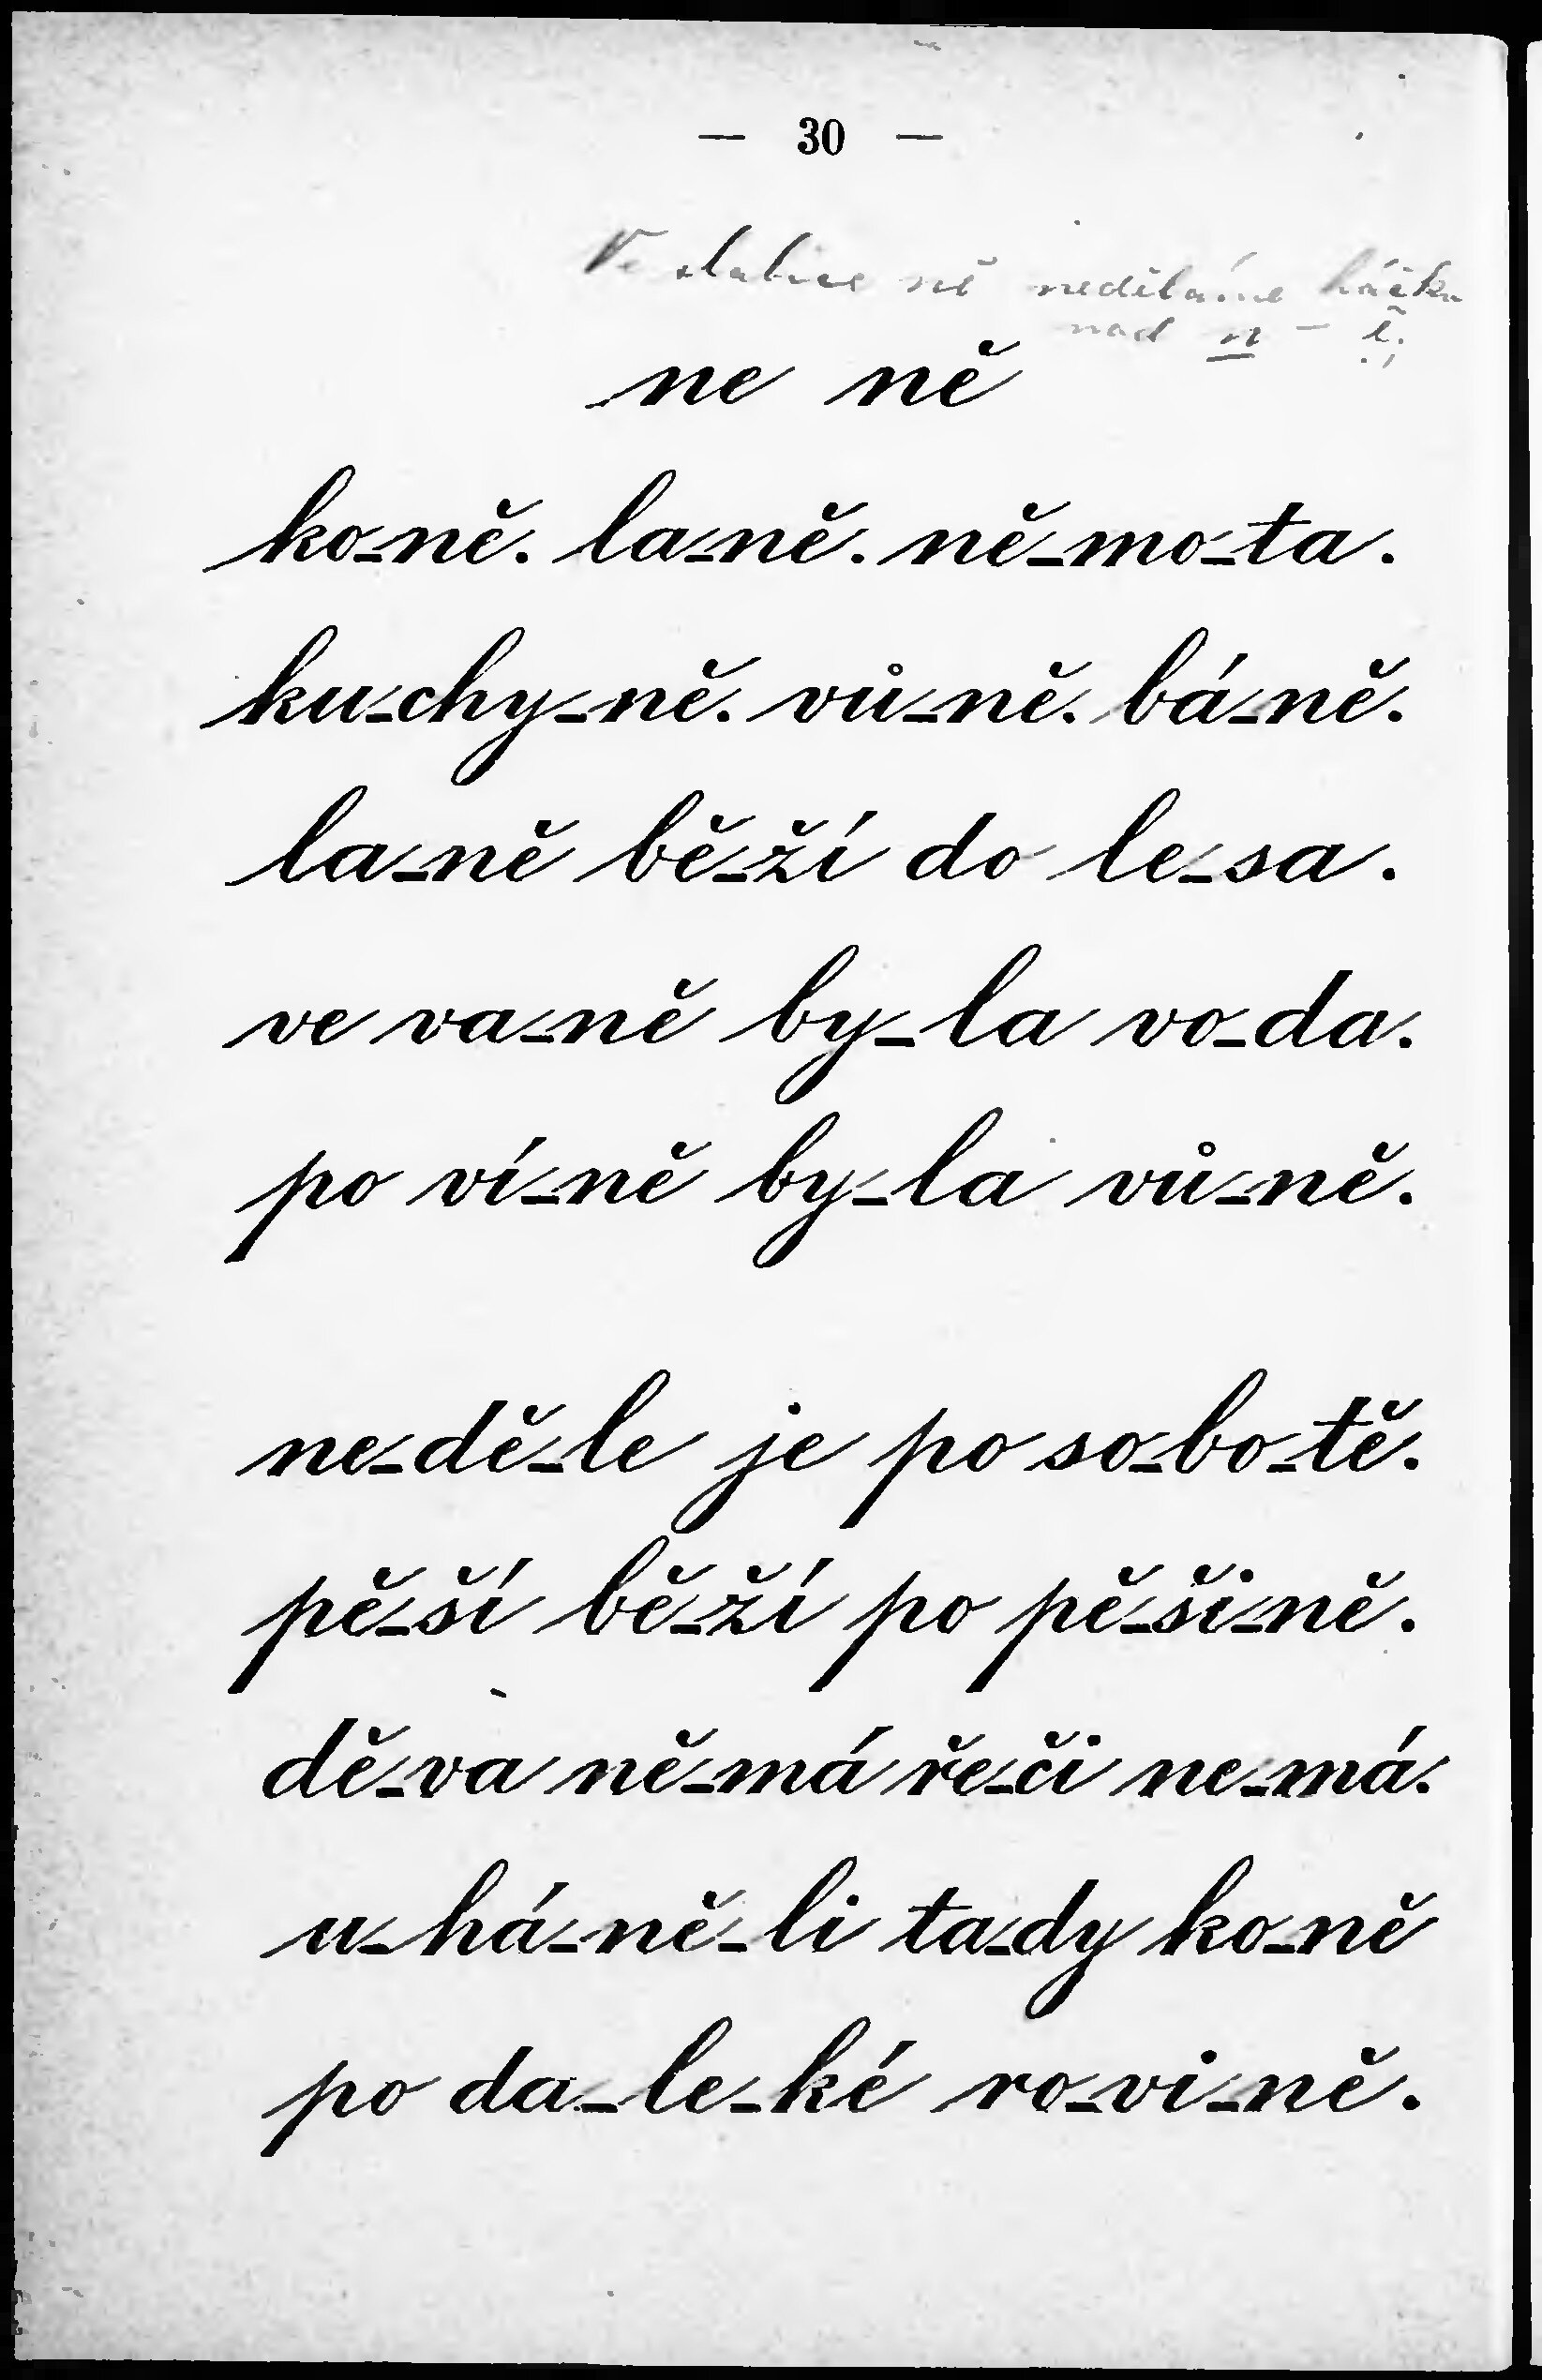 — 30 —
Ve slabice ně neděláme háčku
nad n – ě.
ne ně
ko-ně. la-ně. ně-mo-ta.
ku-chy-ně. vů-ně. bá-ně.
la-ně bě-ží do le-sa.
ve va-ně by-la vo-da.
po ví-ně by-la vů-ně.
ne-dě-le je po so-bo-tě.
pě-ší bě-ží po pě-ši-ně.
dě-va ně-má ře-či ne-má.
u-há-ně-li ta-dy ko-ně
po da-le-ké ro-vi-ně.